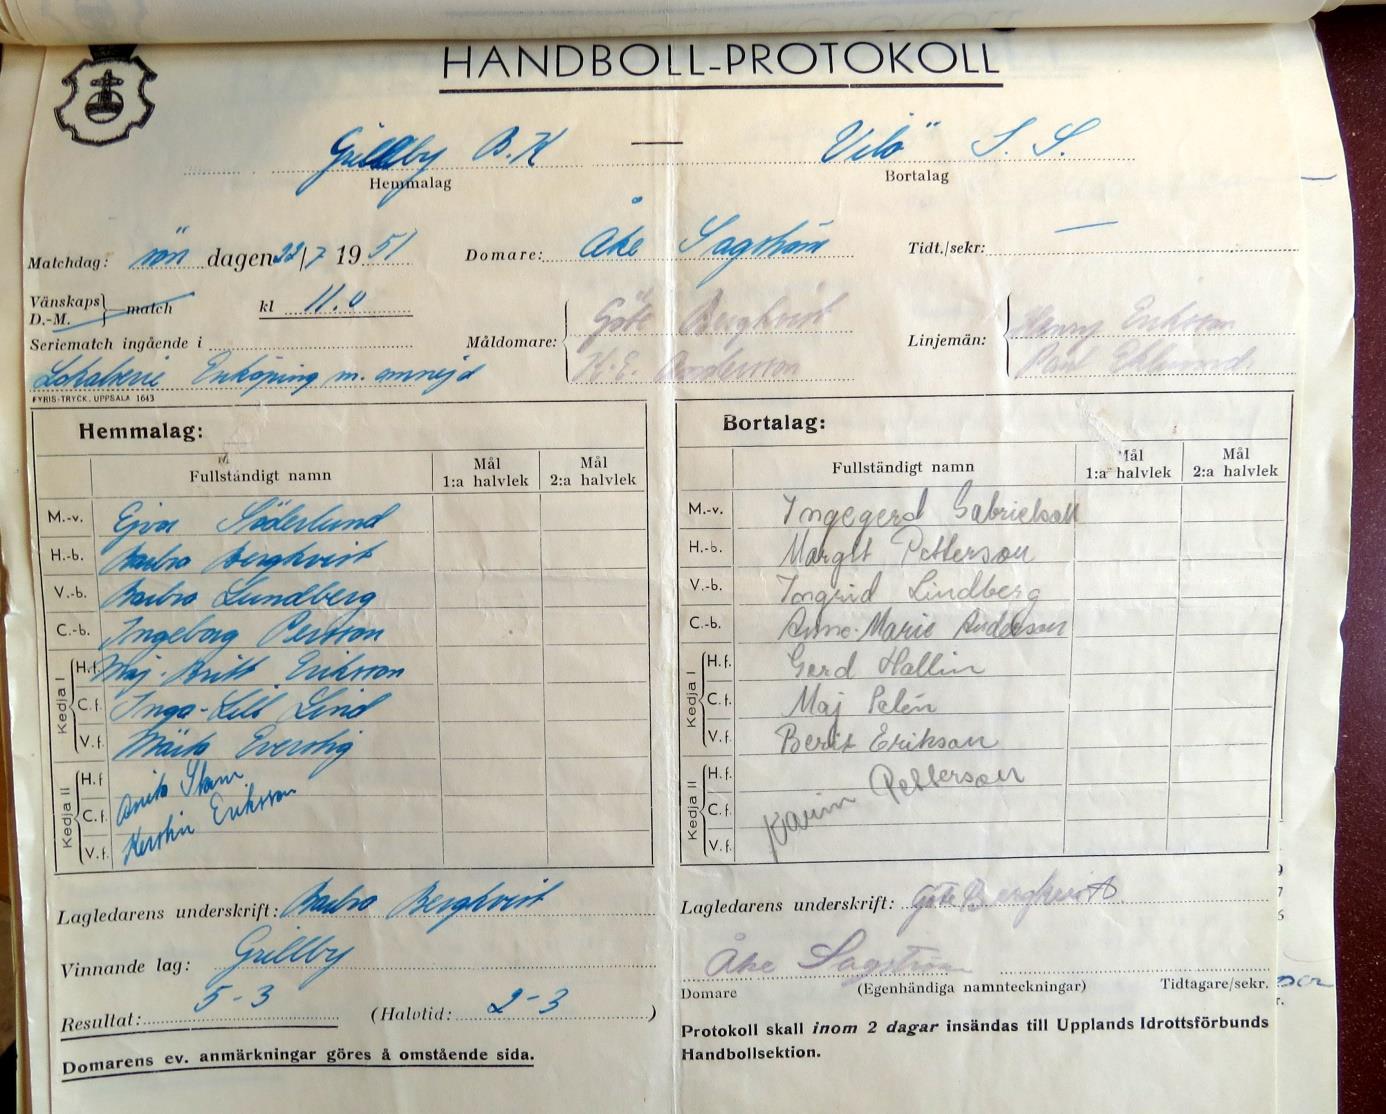 HANDBOLL-PROTOKOLL
Grillby B.K — Vilö S. S.
Hemmalag Bortalag
Matchdag: sön dagen 22/7 1951 Domare: Åke Sagström Tidt./sekr: —
Vänskaps
D.-M. match kl 11.0 Måldomare: Göte Bergkvist Linjemän: Henry Erikson
Seriematch ingående i K.E. Andersson Paul Eklund
Lokalserie Enköping m. omnejd
FYRIS-TRYCK. UPPSALA 1643
Hemmalag:
Fullständigt namn Mål 1:a halvlek Mål 2:a halvlek
M.-v. Ejvor Söderlund
H.-b. Barbro Bergkvist
V.-b. Barbro Lundberg
C.-b. Ingeborg Persson
Kedja I
H.f. Maj-Britt Eriksson
C.f. Inga-Lill Lind
V.f. Märta Everstig
Kedja II
H.f. Anita Stam
C.f. Kerstin Eriksson
V.f.
Lagledarens underskrift: Barbro Bergkvist
Vinnande lag: Grillby
Resultat: 5-3 (Halvtid: 2-3)
Domarens ev. anmärkningar göres å omstående sida.
Bortalag:
Fullständigt namn Mål 1:a halvlek Mål 2:a halvlek
M.-v. Ingegerd Gabrielson
H.-b. Margit Petterson
V.-b. Ingrid Lindberg
C.-b. Anne-Marie Andersson
Kedja I
H.f. Gerd Hallin
C.f. Maj Palén
V.f. Berit Erikson
Kedja II
H.f.
C.f. Karin Petterson
V.f.
Lagledarens underskrift: Göte Bergkvist
Åke Sagström
Domare (Egenhändiga namnteckningar) Tidtagare/sekr.
Protokoll skall inom 2 dagar insändas till Upplands Idrottsförbunds
Handbollsektion.